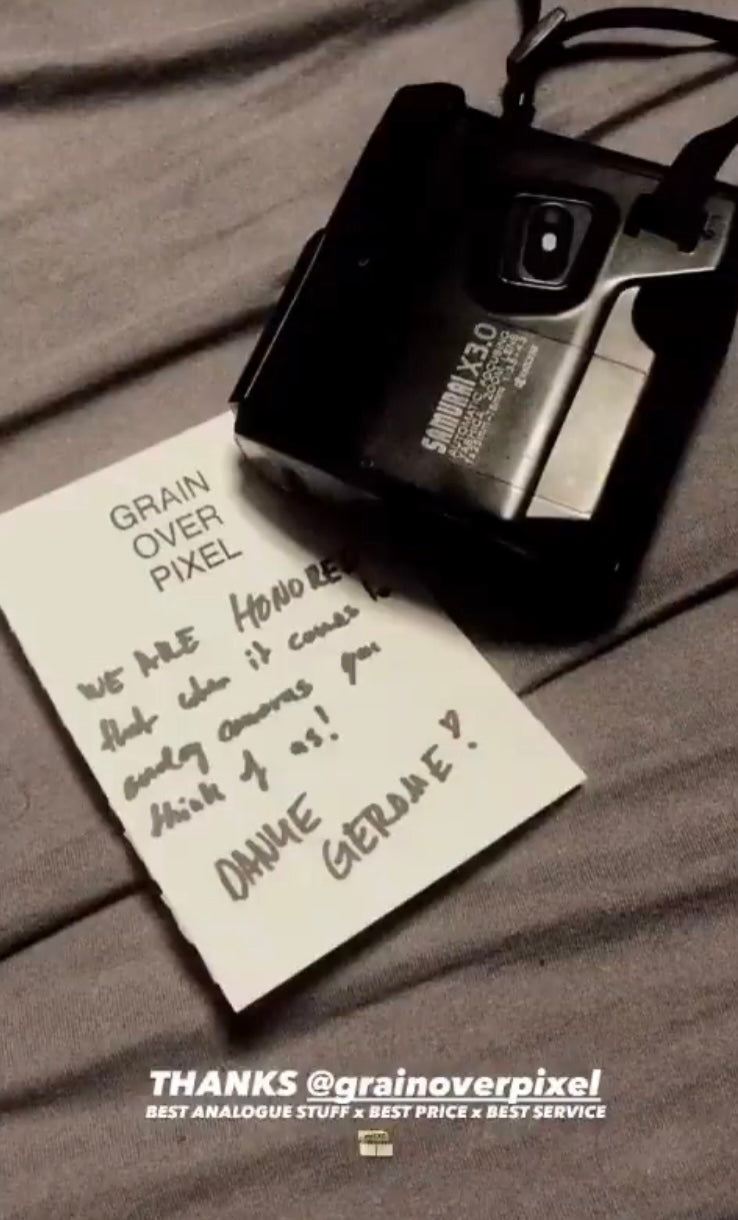 SAMURAI X3.0
GRAIN
OVER
PIXEL
WE ARE HONORED
that when it comes to
analog cameras you
think of us!
DANKE
GEROME!
THANKS @grainoverpixel
BEST ANALOGUE STUFF x BEST PRICE x BEST SERVICE